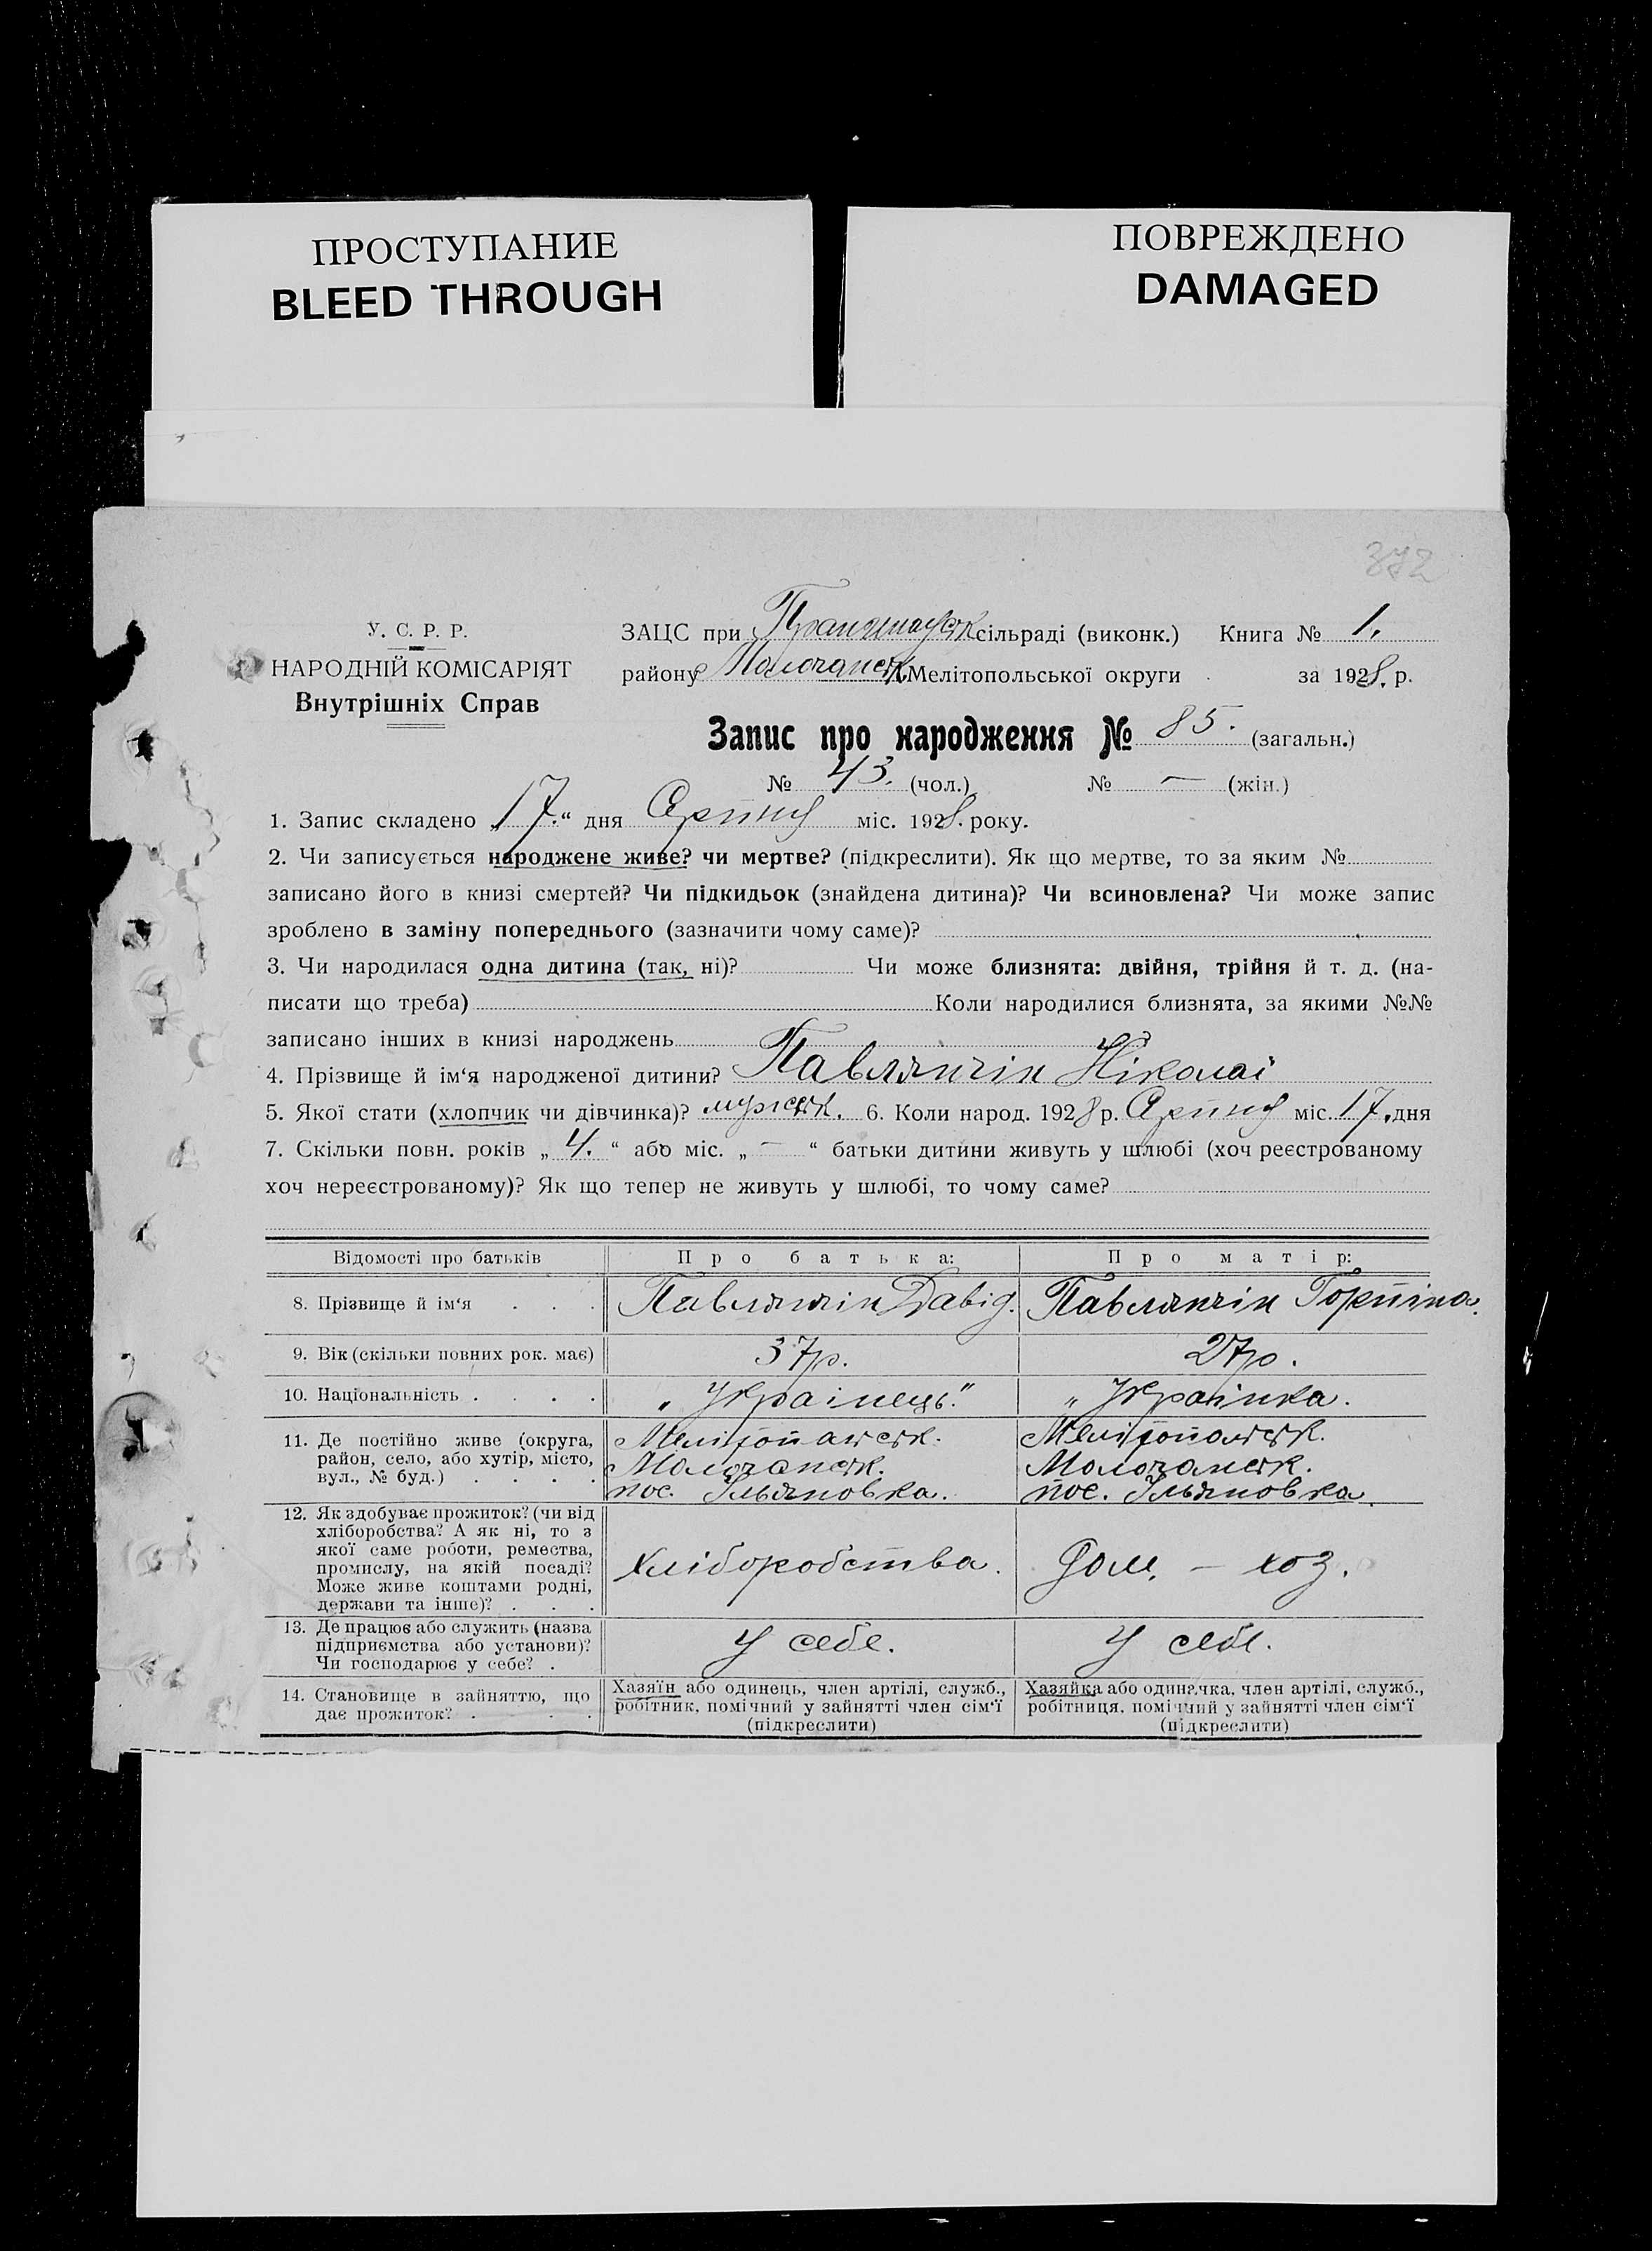 ПРОСТУПАНИЕ
BLEED THROUGH
ПОВРЕЖДЕНО
DAMAGED
372
У. С. Р. Р.
НАРОДНІЙ КОМІСАРІЯТ
Внутрішніх Справ
ЗАЦС при сільраді (виконк.) Книга № 1.
району Молочанськ Мелітопольської округи за 1928. р.
Запис про народження № 85. (загальн.)
№ 43. (чол.) № — (жін.)
1. Запис складено „17.“ дня міс. 1928. року.
2. Чи записується народжене живе? чи мертве? (підкреслити). Як що мертве, то за яким №
записано його в книзі смертей? Чи підкидьок (знайдена дитина)? Чи всиновлена? Чи може запис
зроблено в заміну попереднього (зазначити чому саме)?
3. Чи народилася одна дитина (так, ні)? Чи може близнята: двійня, трійня й т. д. (на-
писати що треба) Коли народилися близнята, за якими №№
записано інших в книзі народжень
4. Прізвище й ім‘я народженої дитини? Павлянчін Ніколаї
5. Якої стати (хлопчик чи дівчинка)? мужськ. 6. Коли народ. 1928 р. міс. 17. дня
7. Скільки повн. років „ 4. “ або міс. „ — “ батьки дитини живуть у шлюбі (хоч реєстрованому
хоч нереєстрованому)? Як що тепер не живуть у шлюбі, то чому саме?
Відомості про батьків Про батька: Про матір:
8. Прізвище й ім‘я . . . Павлянчін Давід. Павлянчін Горпіна.
9. Вік (скільки повних рок. має) 37р. 27р.
10. Національність . . . . „Украінець.“ „Украінка.
11. Де постійно живе (округа, Мелітопольськ. Мелітопольськ.
район, село, або хутір, місто, Молочанськ. Молочанськ.
вул., № буд.) . . . . пос. Ільяновка. пос. Ільяновка.
12. Як здобуває прожиток? (чи від
хліборобства? А як ні, то з
якої саме роботи, ремества,
промислу, на якій посаді? Хліборобства. Дом. – хоз.
Може живе коштами родні,
держави та інше)? . . .
13. Де працює або служить (назва
підприємства або установи)? У себе. У себе.
Чи господарює у себе? .
14. Становище в зайняттю, що Хазяїн або одинець, член артілі, служб., Хазяйка або одиначка, член артілі, служб.,
дає прожиток? . . . робітник, помічний у зайнятті член сім‘ї робітниця, помічний у зайнятті член сім‘ї
(підкреслити) (підкреслити)